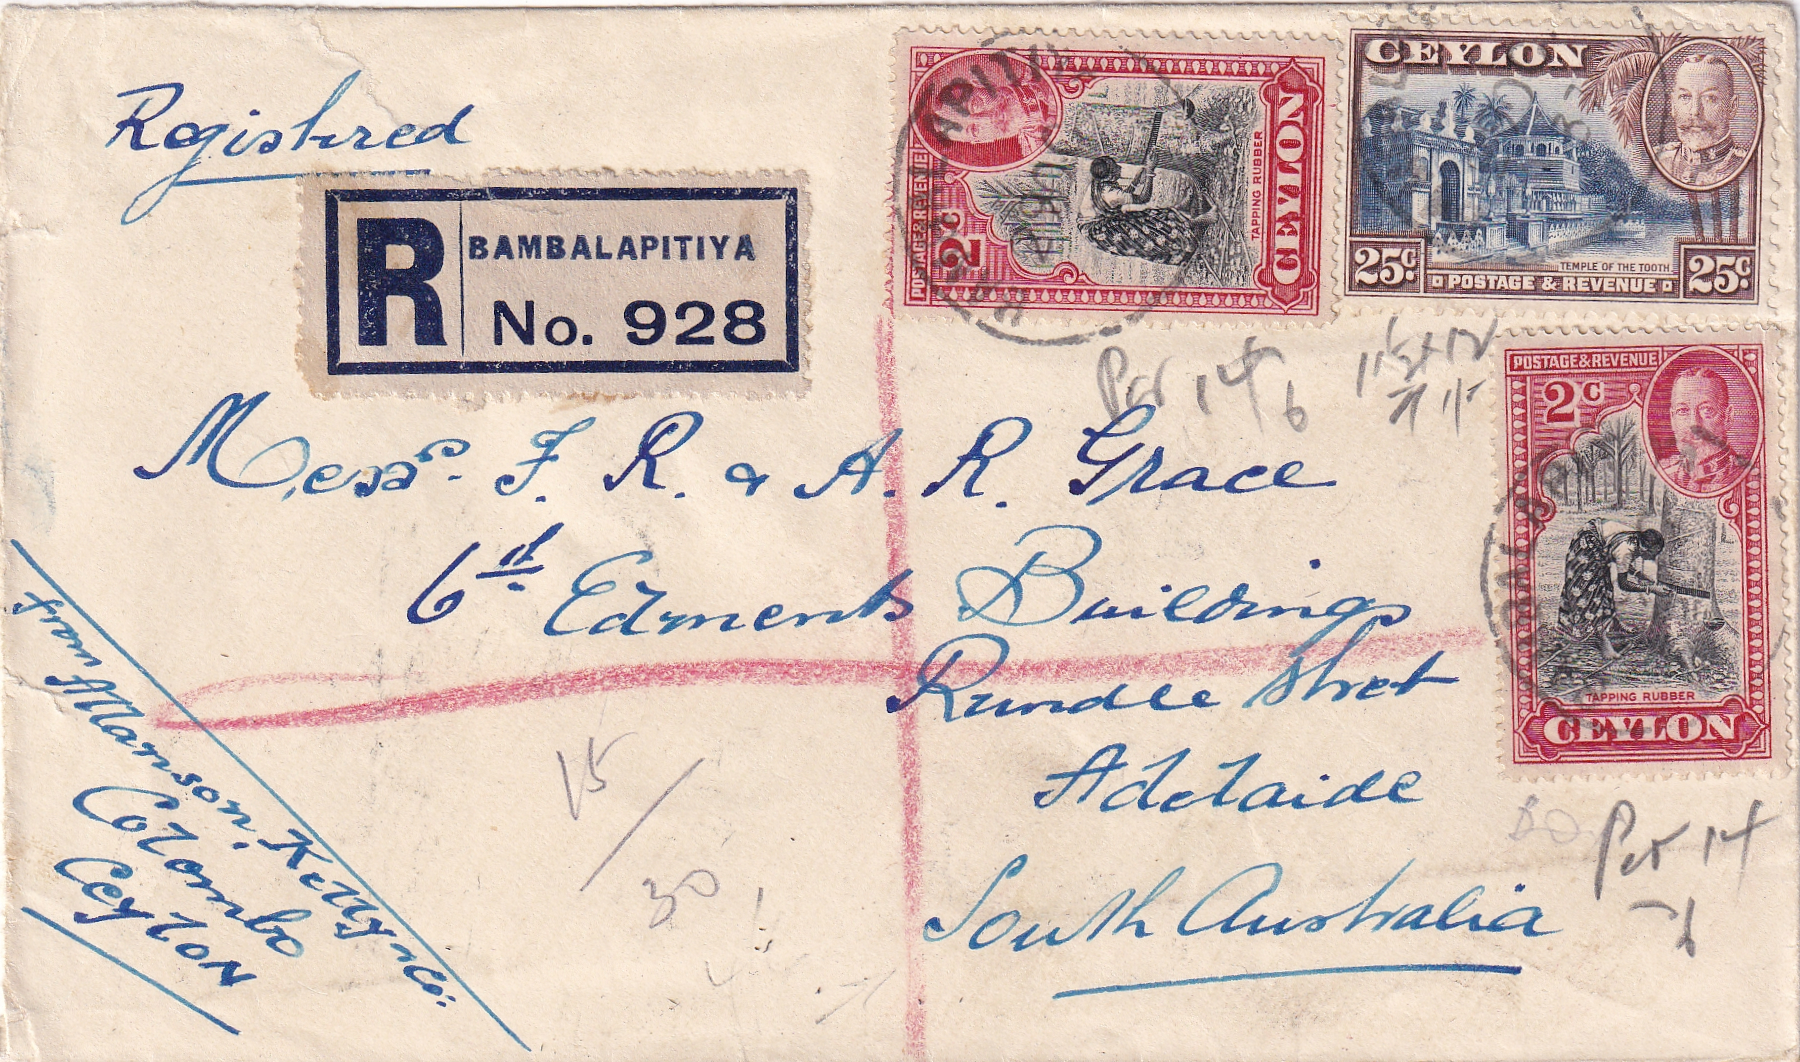 Registred
R BAMBALAPITIYA
No. 928
POSTAGE & REVENUE
2 C
TAPPING RUBBER
CEYLON
CEYLON
25 C.
TEMPLE OF THE TOOTH
POSTAGE & REVENUE
25 C
POSTAGE & REVENUE
2 C
TAPPING RUBBER
CEYLON
Per 14
6
11½ x 12
Messrs. F. R. & A. R. Grace
Edments Buildings
Rundle Street
Adelaide
South Australia
From Allanson, Kelly & Co:
Colombo
Ceylon
15/30
Per 14